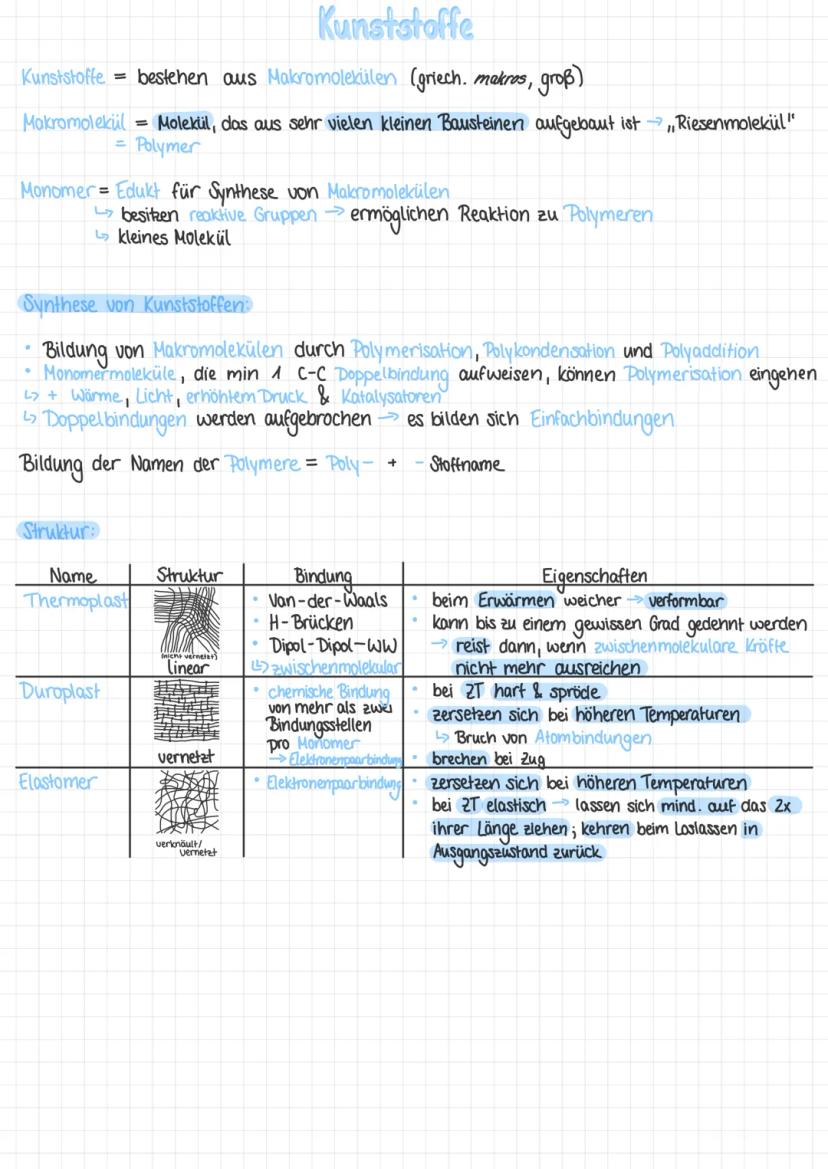 Kunststoffe
Kunststoffe = bestehen aus Makromolekülen (griech. makros, groß)
Makromolekül = Molekül, das aus sehr vielen kleinen Bausteinen aufgebaut ist → „Riesenmolekül"
= Polymer
Monomer = Edukt für Synthese von Makromolekülen
↳ besitzen reaktive Gruppen → ermöglichen Reaktion zu Polymeren
↳ kleines Molekül
Synthese von Kunststoffen:
• Bildung von Makromolekülen durch Polymerisation, Polykondensation und Polyaddition
• Monomermoleküle, die min 1 C-C Doppelbindung aufweisen, können Polymerisation eingehen
↳ + Wärme, Licht, erhöhtem Druck & Katalysatoren
↳ Doppelbindungen werden aufgebrochen → es bilden sich Einfachbindungen
Bildung der Namen der Polymere = Poly- + - Stoffname
Struktur:
Name Struktur Bindung Eigenschaften
Thermoplast
(nicht vernetzt)
linear
• Van-der-Waals
• H-Brücken
• Dipol-Dipol-WW
↳ zwischenmolekular
• beim Erwärmen weicher → verformbar
• kann bis zu einem gewissen Grad gedehnt werden
→ reist dann, wenn zwischenmolekulare Kräfte
nicht mehr ausreichen
Duroplast
vernetzt
• chemische Bindung
von mehr als zwei
Bindungsstellen
pro Monomer
→ Elektronenpaarbindung
• bei ZT hart & spröde
• zersetzen sich bei höheren Temperaturen
↳ Bruch von Atombindungen
• brechen bei Zug
Elastomer
verknäult/
vernetzt
• Elektronenpaarbindung
• zersetzen sich bei höheren Temperaturen
• bei ZT elastisch → lassen sich mind. auf das 2x
ihrer Länge ziehen; kehren beim Loslassen in
Ausgangszustand zurück